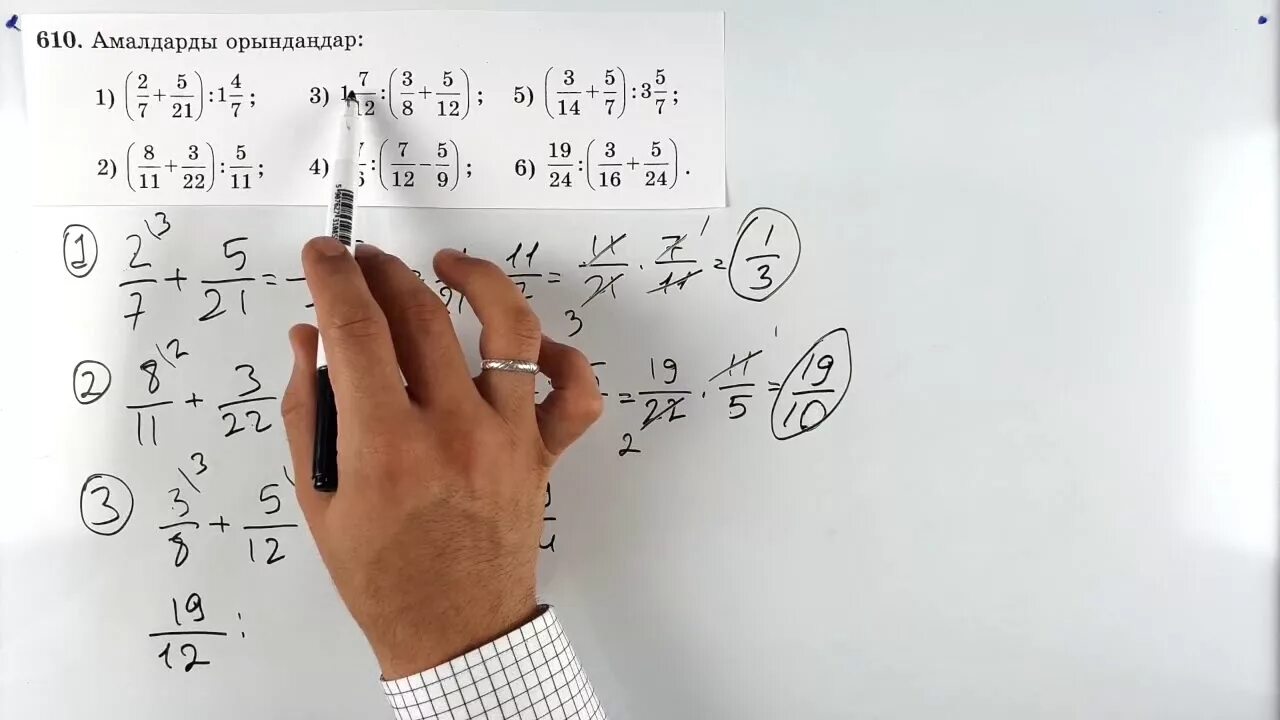 610. Амалдарды орындаңдар:
1) (2/7 + 5/21) : 1 4/7 ; 3) 1 7/12 : (3/8 + 5/12) ; 5) (3/14 + 5/7) : 3 5/7 ;
2) (8/11 + 3/22) : 5/11 ; 4) : (7/12 − 5/9) ; 6) 19/24 : (3/16 + 5/24) .
1 2\3/7 + 5/21 = 11/21 · 7/11 = 1/3
3 1
2 8\2/11 + 3/22 = 19/22 · 11/5 = 19/10
2 1
3 3\3/8 + 5/12
19/12 :